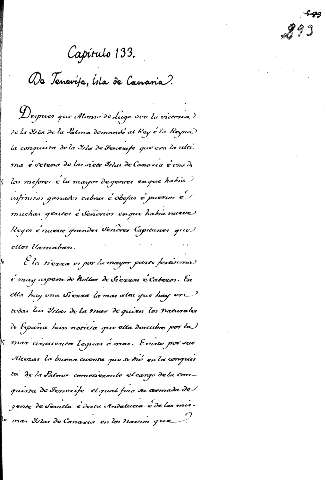 293
Capítulo 133.
De Tenerife, isla de Canaria.
Despues que Alonso de Lugo con la victoria
de la Isla de la Palma demandó al Rey é la Reyna
la conquista de la Isla de Tenerife que era la ulti
ma é setena de las siete Islas de Canaria é una de
las mejores é la mayor de gentes en que habia
infinitos ganados cabras é obejas é puercos é
muchas gentes é Señorios en que habia nueve
Reyes é nueve grandes Señores Capitanes que
ellos llamaban.
É la tierra es por la mayor parte
é muy aspera de Sierras é Cabezos. En
ella hay una Sierra la mas alta que hay en
todas las Islas de la mar de quien los naturales
de España han noticia que ella descubre por la
mar cinquenta leguas é mas. É visto por sus
Altezas la buena cuenta que se dió en la conquis
ta de la Palma el cargo de la con
quista de Tenerife el qual fizo su armada de
gente de Sevilla é desta Andalucia é de las mis
mas Islas de Canaria en los Navios que